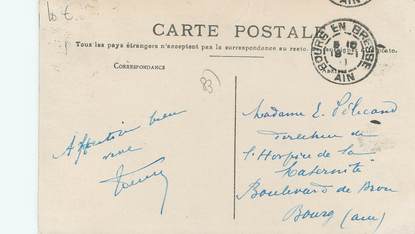 10 €
CARTE POSTALE
Tous les pays étrangers n'acceptent pas la correspondance au recto.
CORRESPONDANCE
AIN
BOURG EN BRESSE
AIN
83
Affection bien
Madame E. Pélicand
de
l'Hospice de la
Maternité
Boulevard de Brou
Bourg (Ain)